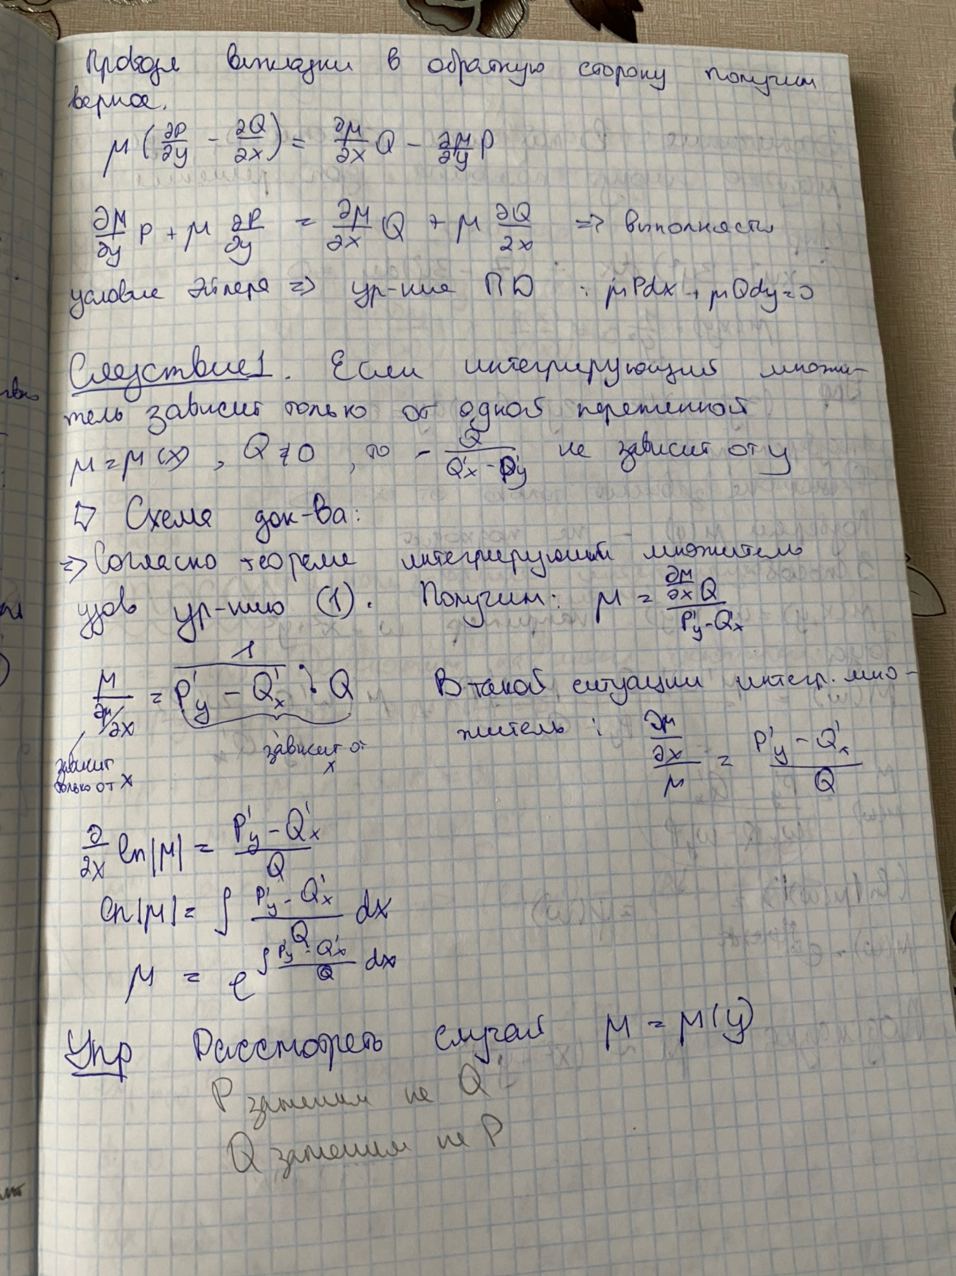 Проводя выкладки в обратную сторону получим
верное.
μ(∂P/∂y - ∂Q/∂x) = ∂μ/∂x Q - ∂μ/∂y P
∂μ/∂y P + μ ∂P/∂y = ∂μ/∂x Q + μ ∂Q/∂x => выполнено
условие Эйлера => ур-ние ПД : μPdx + μQdy = 0
Следствие 1. Если интегрирующий множи-
тель зависит только от одной переменной
μ = μ(x), Q ≠ 0, то - Q/(Q'x - P'y) не зависит от y
▷ Схема док-ва:
=> Согласно теореме интегрирующий множитель
удов ур-нию (1). Получим: μ = (∂μ/∂x Q)/(P'y - Q'x)
μ/(∂μ/∂x) = 1/(P'y - Q'x) · Q В такой ситуации интегр. мно-
житель : (∂μ/∂x)/μ = (P'y - Q'x)/Q
зависит только от x
зависит от x
∂/∂x ln|μ| = (P'y - Q'x)/Q
ln|μ| = ∫ (P'y - Q'x)/Q dx
μ = e^∫ (P'y - Q'x)/Q dx
Упр Рассмотреть случай μ = μ(y)
P заменим на Q
Q заменим на P